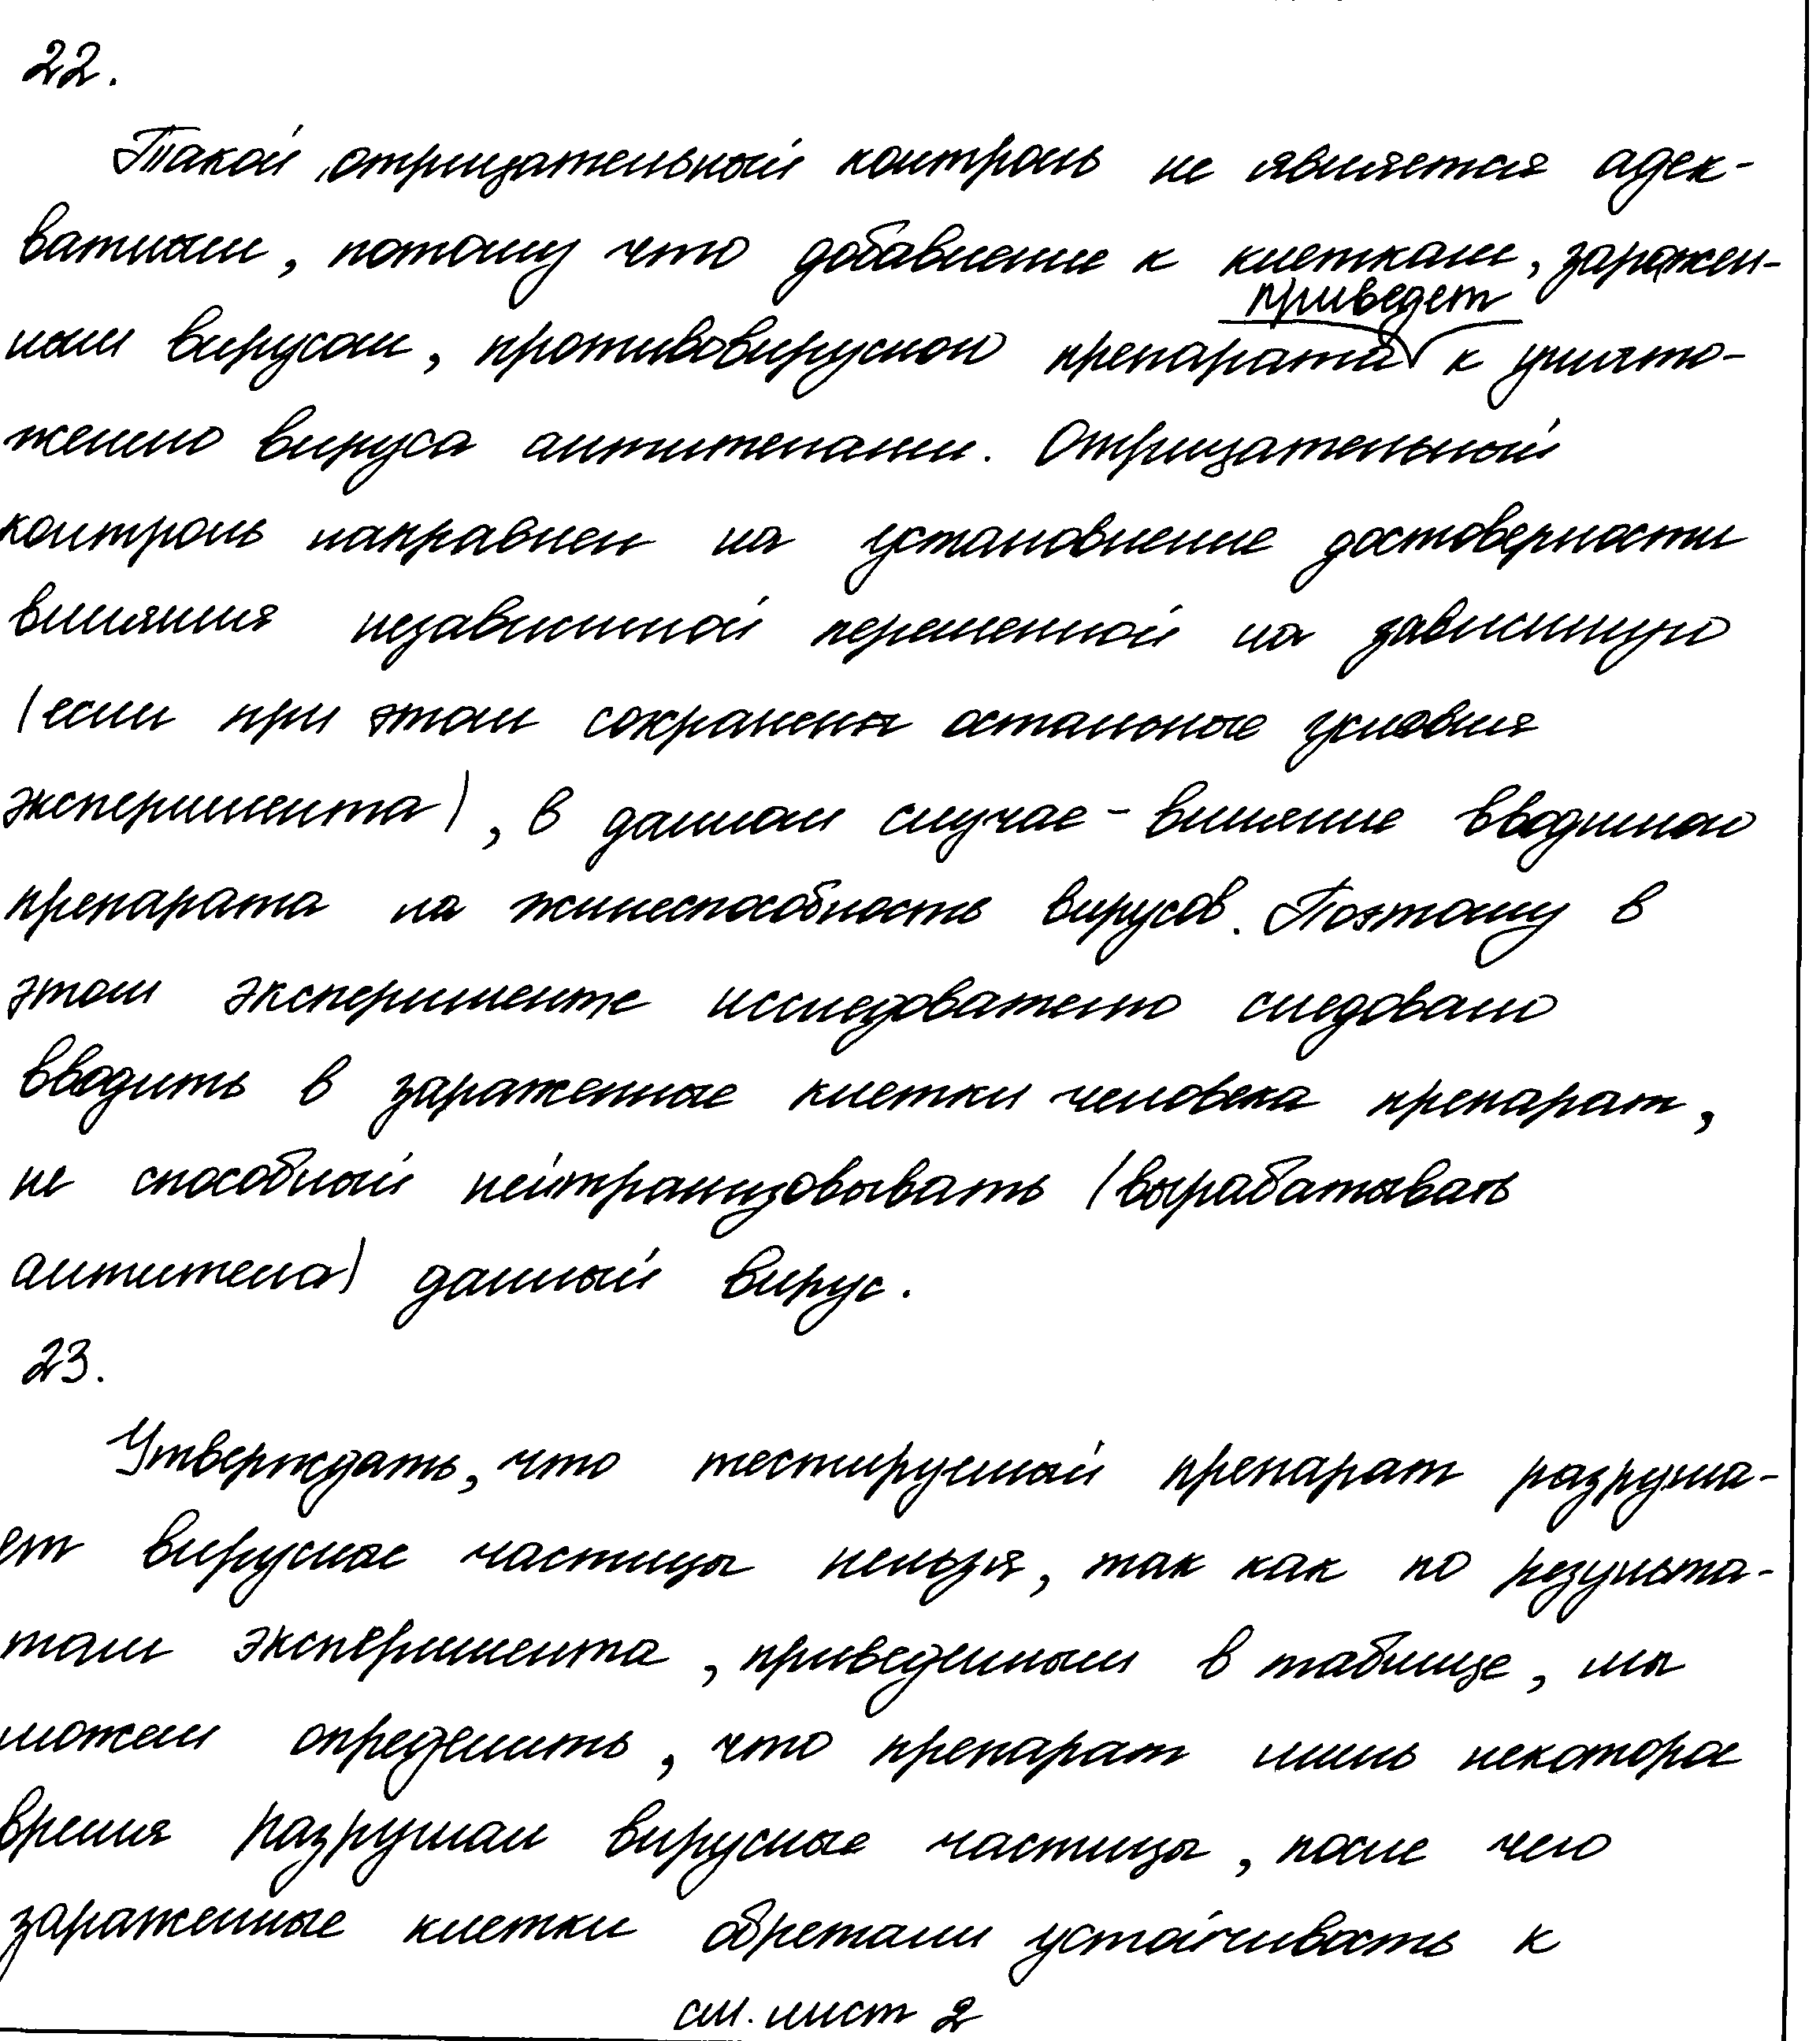 22.
Такой отрицательный контроль не является адек-
ватным, потому что добавление к клеткам, заражен-
приведет
ным вирусом, противовирусного препарата к уничто-
жению вируса антителами. Отрицательный
контроль направлен на установление достоверности
влияния независимой переменной на зависимую
(если при этом сохранены остальные условия
эксперимента), в данном случае - влияние вводимого
препарата на жизнеспособность вирусов. Поэтому в
этом эксперименте исследователю следовало
вводить в зараженные клетки человека препарат,
не способный нейтрализовывать (вырабатывать
антитела) данный вирус.
23.
Утверждать, что тестируемый препарат разруша-
ет вирусные частицы нельзя, так как по результа-
там эксперимента, приведенным в таблице, мы
можем определить, что препарат лишь некоторое
время разрушал вирусные частицы, после чего
зараженные клетки обретали устойчивость к
см. лист 2